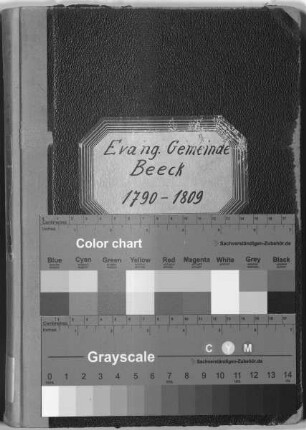 Evang. Gemeinde
Beeck
1790-1809
Color chart
Sachverständigen-Zubehör.de
Blue Cyan Green Yellow Red Magenta White Grey Black
Grayscale
C Y M
Sachverständigen-Zubehör.de
0 1 2 3 4 5 6 7 8 9 10 11 12 13 14